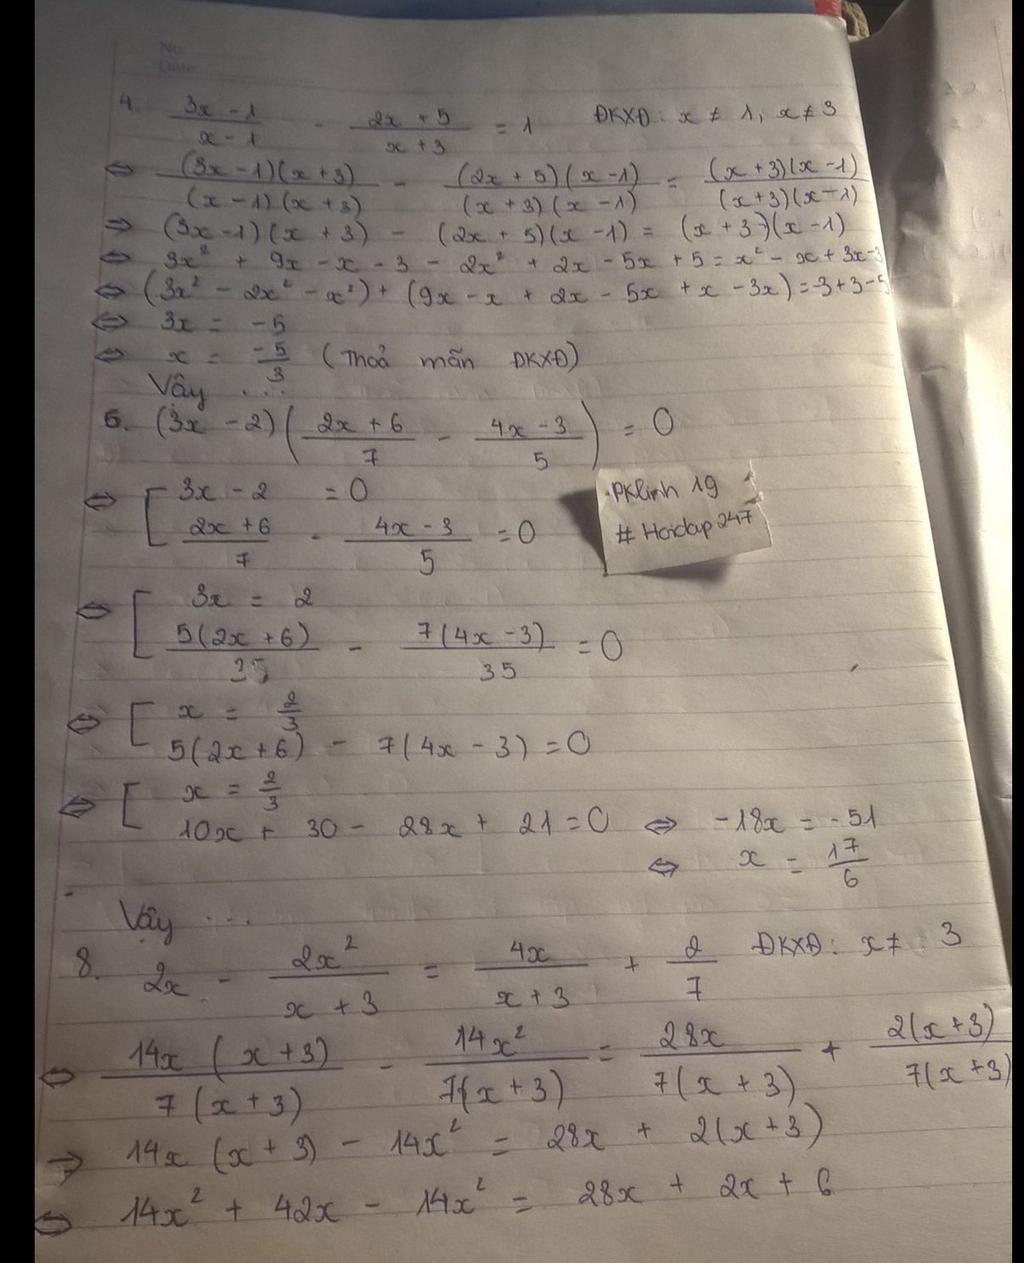 No.
Date
4. (3x - 1)/(x - 1) - (2x + 5)/(x + 3) = 1 ĐKXĐ: x ≠ 1, x ≠ 3
⇔ (3x - 1)(x + 3)/(x - 1)(x + 3) - (2x + 5)(x - 1)/(x + 3)(x - 1) = (x + 3)(x - 1)/(x + 3)(x - 1)
⇒ (3x - 1)(x + 3) - (2x + 5)(x - 1) = (x + 3)(x - 1)
⇔ 3x² + 9x - x - 3 - 2x² + 2x - 5x + 5 = x² - x + 3x - 3
⇔ (3x² - 2x² - x²) + (9x - x + 2x - 5x + x - 3x) = -3 + 3 - 5
⇔ 3x = -5
⇔ x = -5/3 (Thoả mãn ĐKXĐ)
Vậy ...
5. (3x - 2)((2x + 6)/7 - (4x - 3)/5) = 0
⇔ [ 3x - 2 = 0
(2x + 6)/7 - (4x - 3)/5 = 0
PKlinh 19
# Hoidap247
⇔ [ 3x = 2
5(2x + 6)/35 - 7(4x - 3)/35 = 0
⇔ [ x = 2/3
5(2x + 6) - 7(4x - 3) = 0
⇔ [ x = 2/3
10x + 30 - 28x + 21 = 0 ⇔ -18x = -51
⇔ x = 17/6
Vậy ...
8. 2x - 2x²/(x + 3) = 4x/(x + 3) + 2/7 ĐKXĐ: x ≠ 3
⇔ 14x (x + 3)/7 (x + 3) - 14x²/7(x + 3) = 28x/7(x + 3) + 2(x + 3)/7(x + 3)
⇒ 14x (x + 3) - 14x² = 28x + 2(x + 3)
⇔ 14x² + 42x - 14x² = 28x + 2x + 6